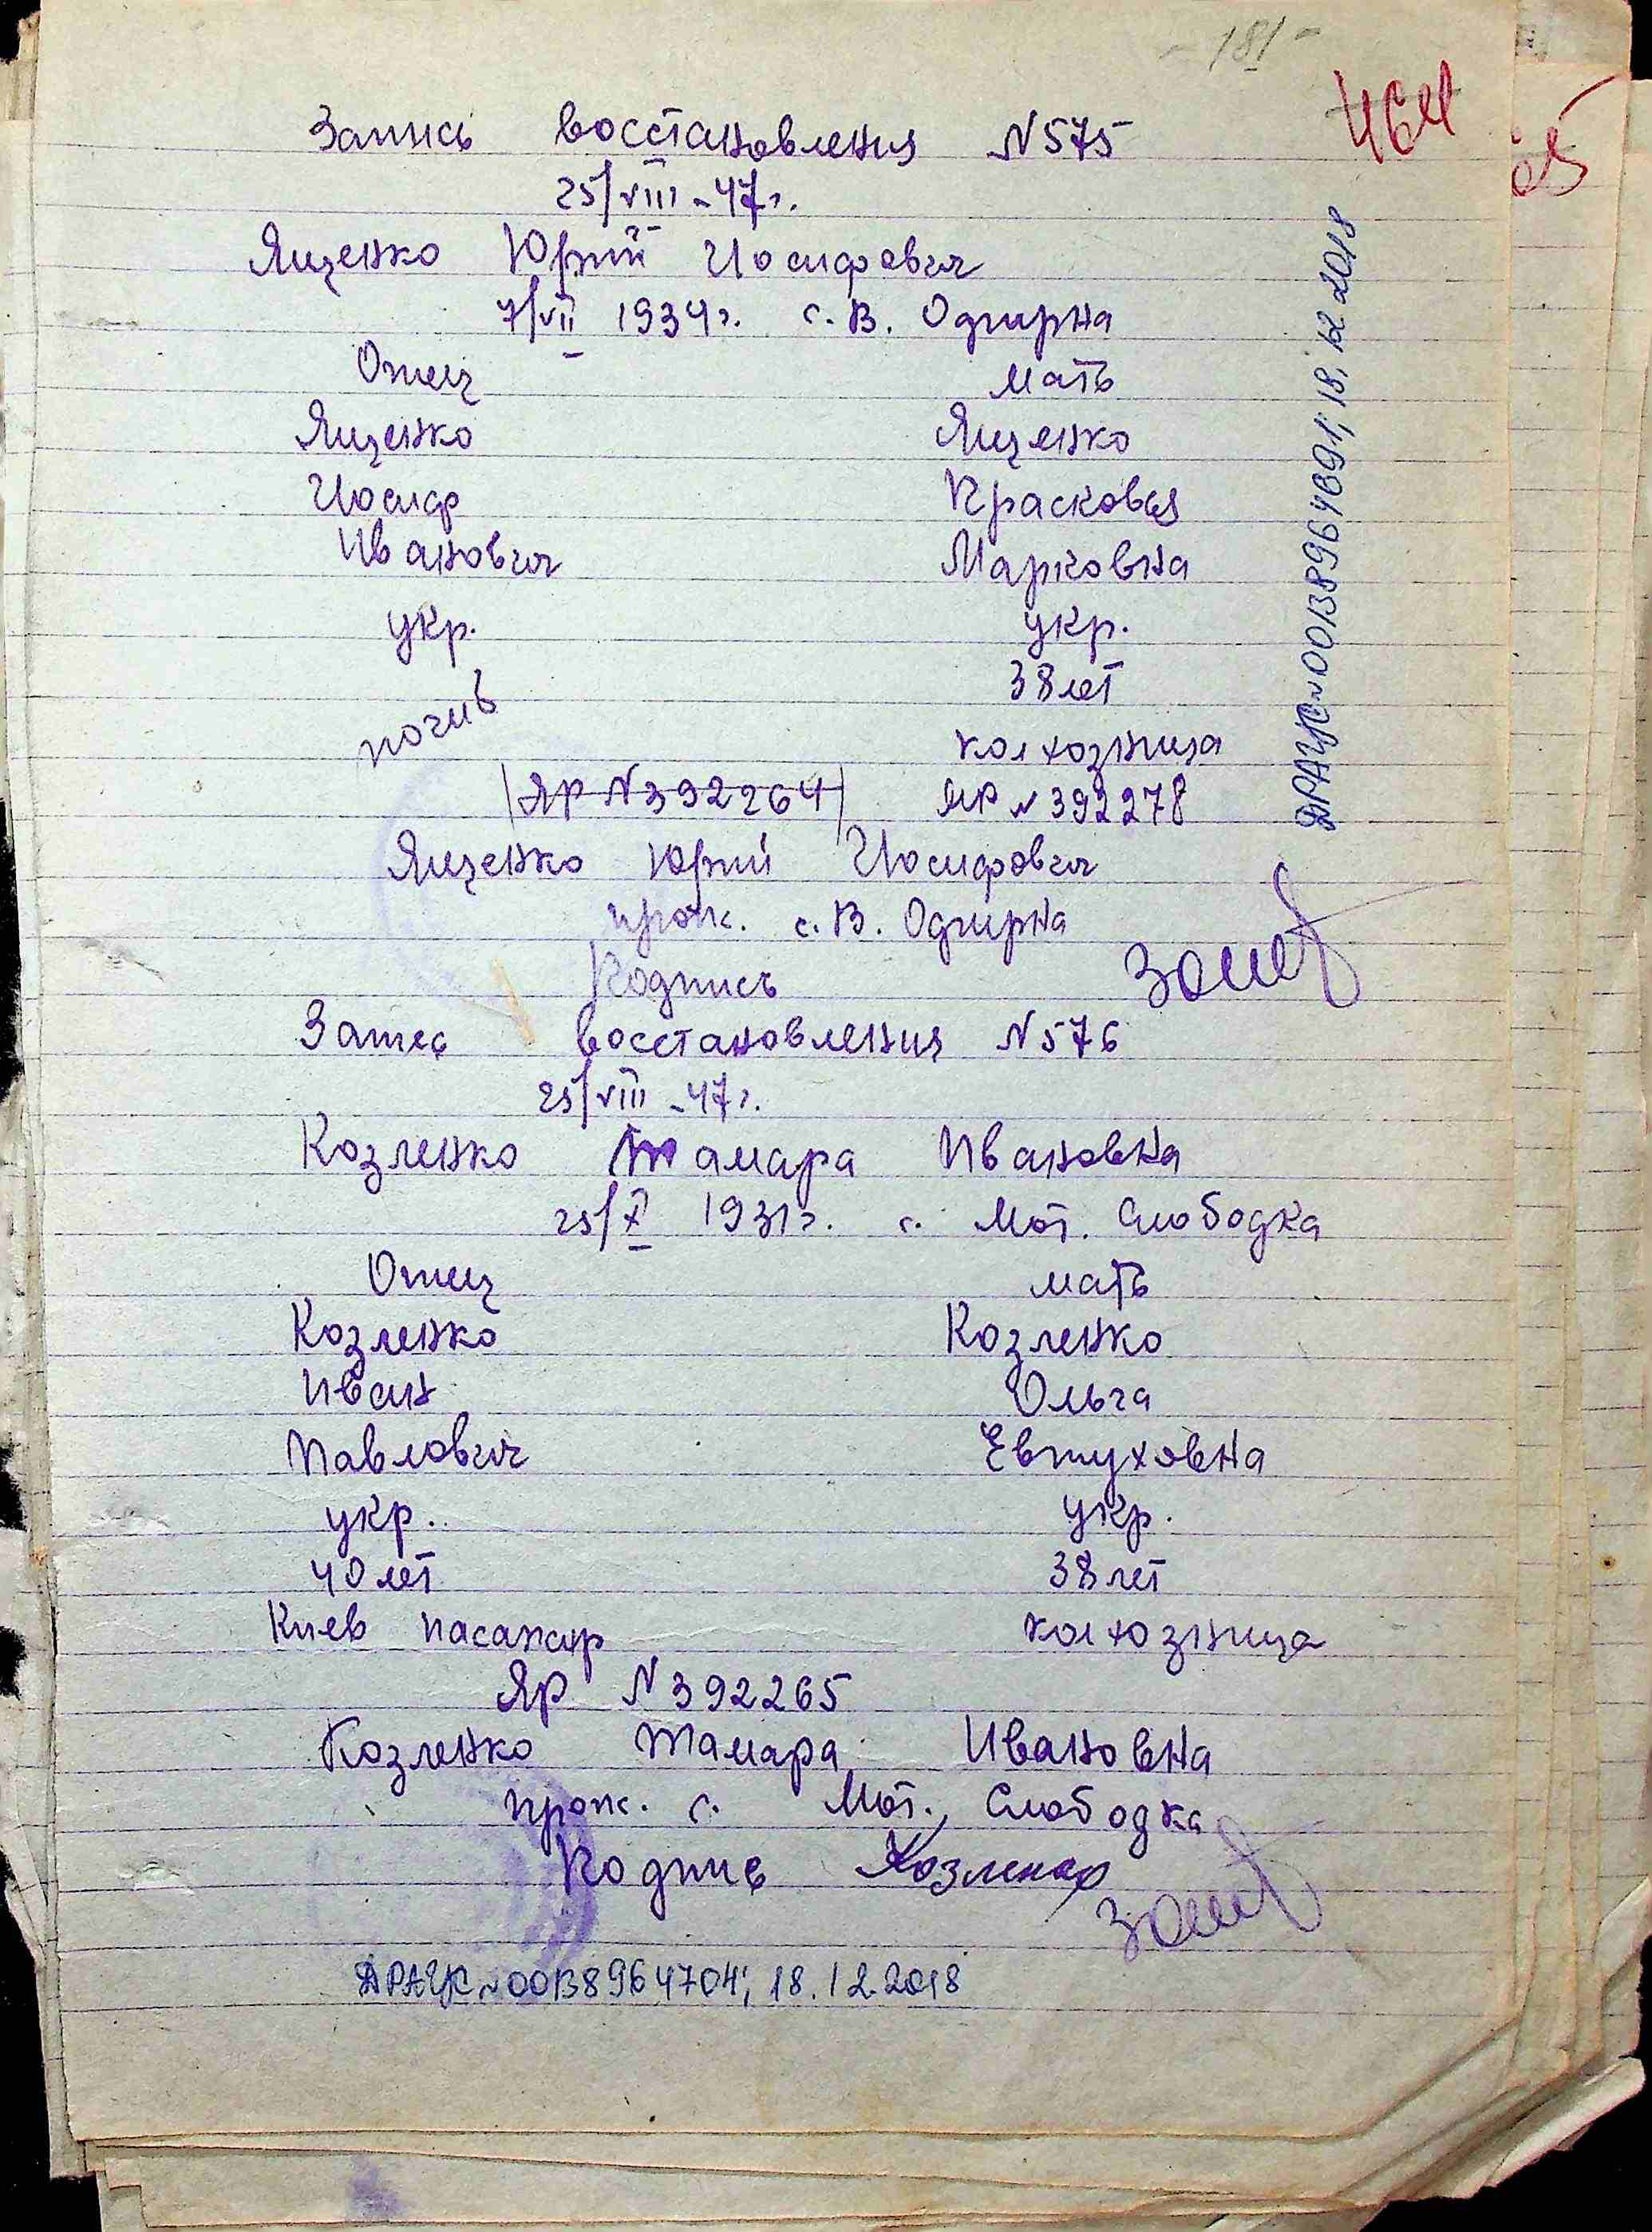 - 181 -
464
65
Запись восстановления N575
25/VIII-47г.
Ященко Юрий Иосифович
7/VII 1934г. с. В. Одгирна
Отец мать
Ященко Ященко
Иосиф Прасковья
Иванович Марковна
укр. укр.
38 лет
погиб колхозница
ЯР N392264 ЯР N392278
Ященко Юрий Иосифович
прож. с. В. Одгирна
Подпись
Запись восстановления N576
25/VIII-47г.
Козленко Тамара Ивановна
25/X 1931г. с. Мот. Слободка
Отец мать
Козленко Козленко
Иван Ольга
Павлович Евтуховна
укр. укр.
40 лет 38 лет
Киев колхозница
ЯР N392265
Козленко Тамара Ивановна
прож. с. Мот. Слободка
Подпись Козленко
ДРАЦС N00138964704; 18.12.2018
ДРАЦС N00138964691; 18.12.2018